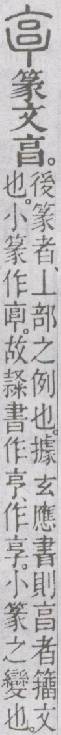 𠅠 篆文亯。
後篆者、丄部之例也。據玄應書則亯者籒文
也。小篆作𠅠。故隸書作亨、作享。小篆之變也。